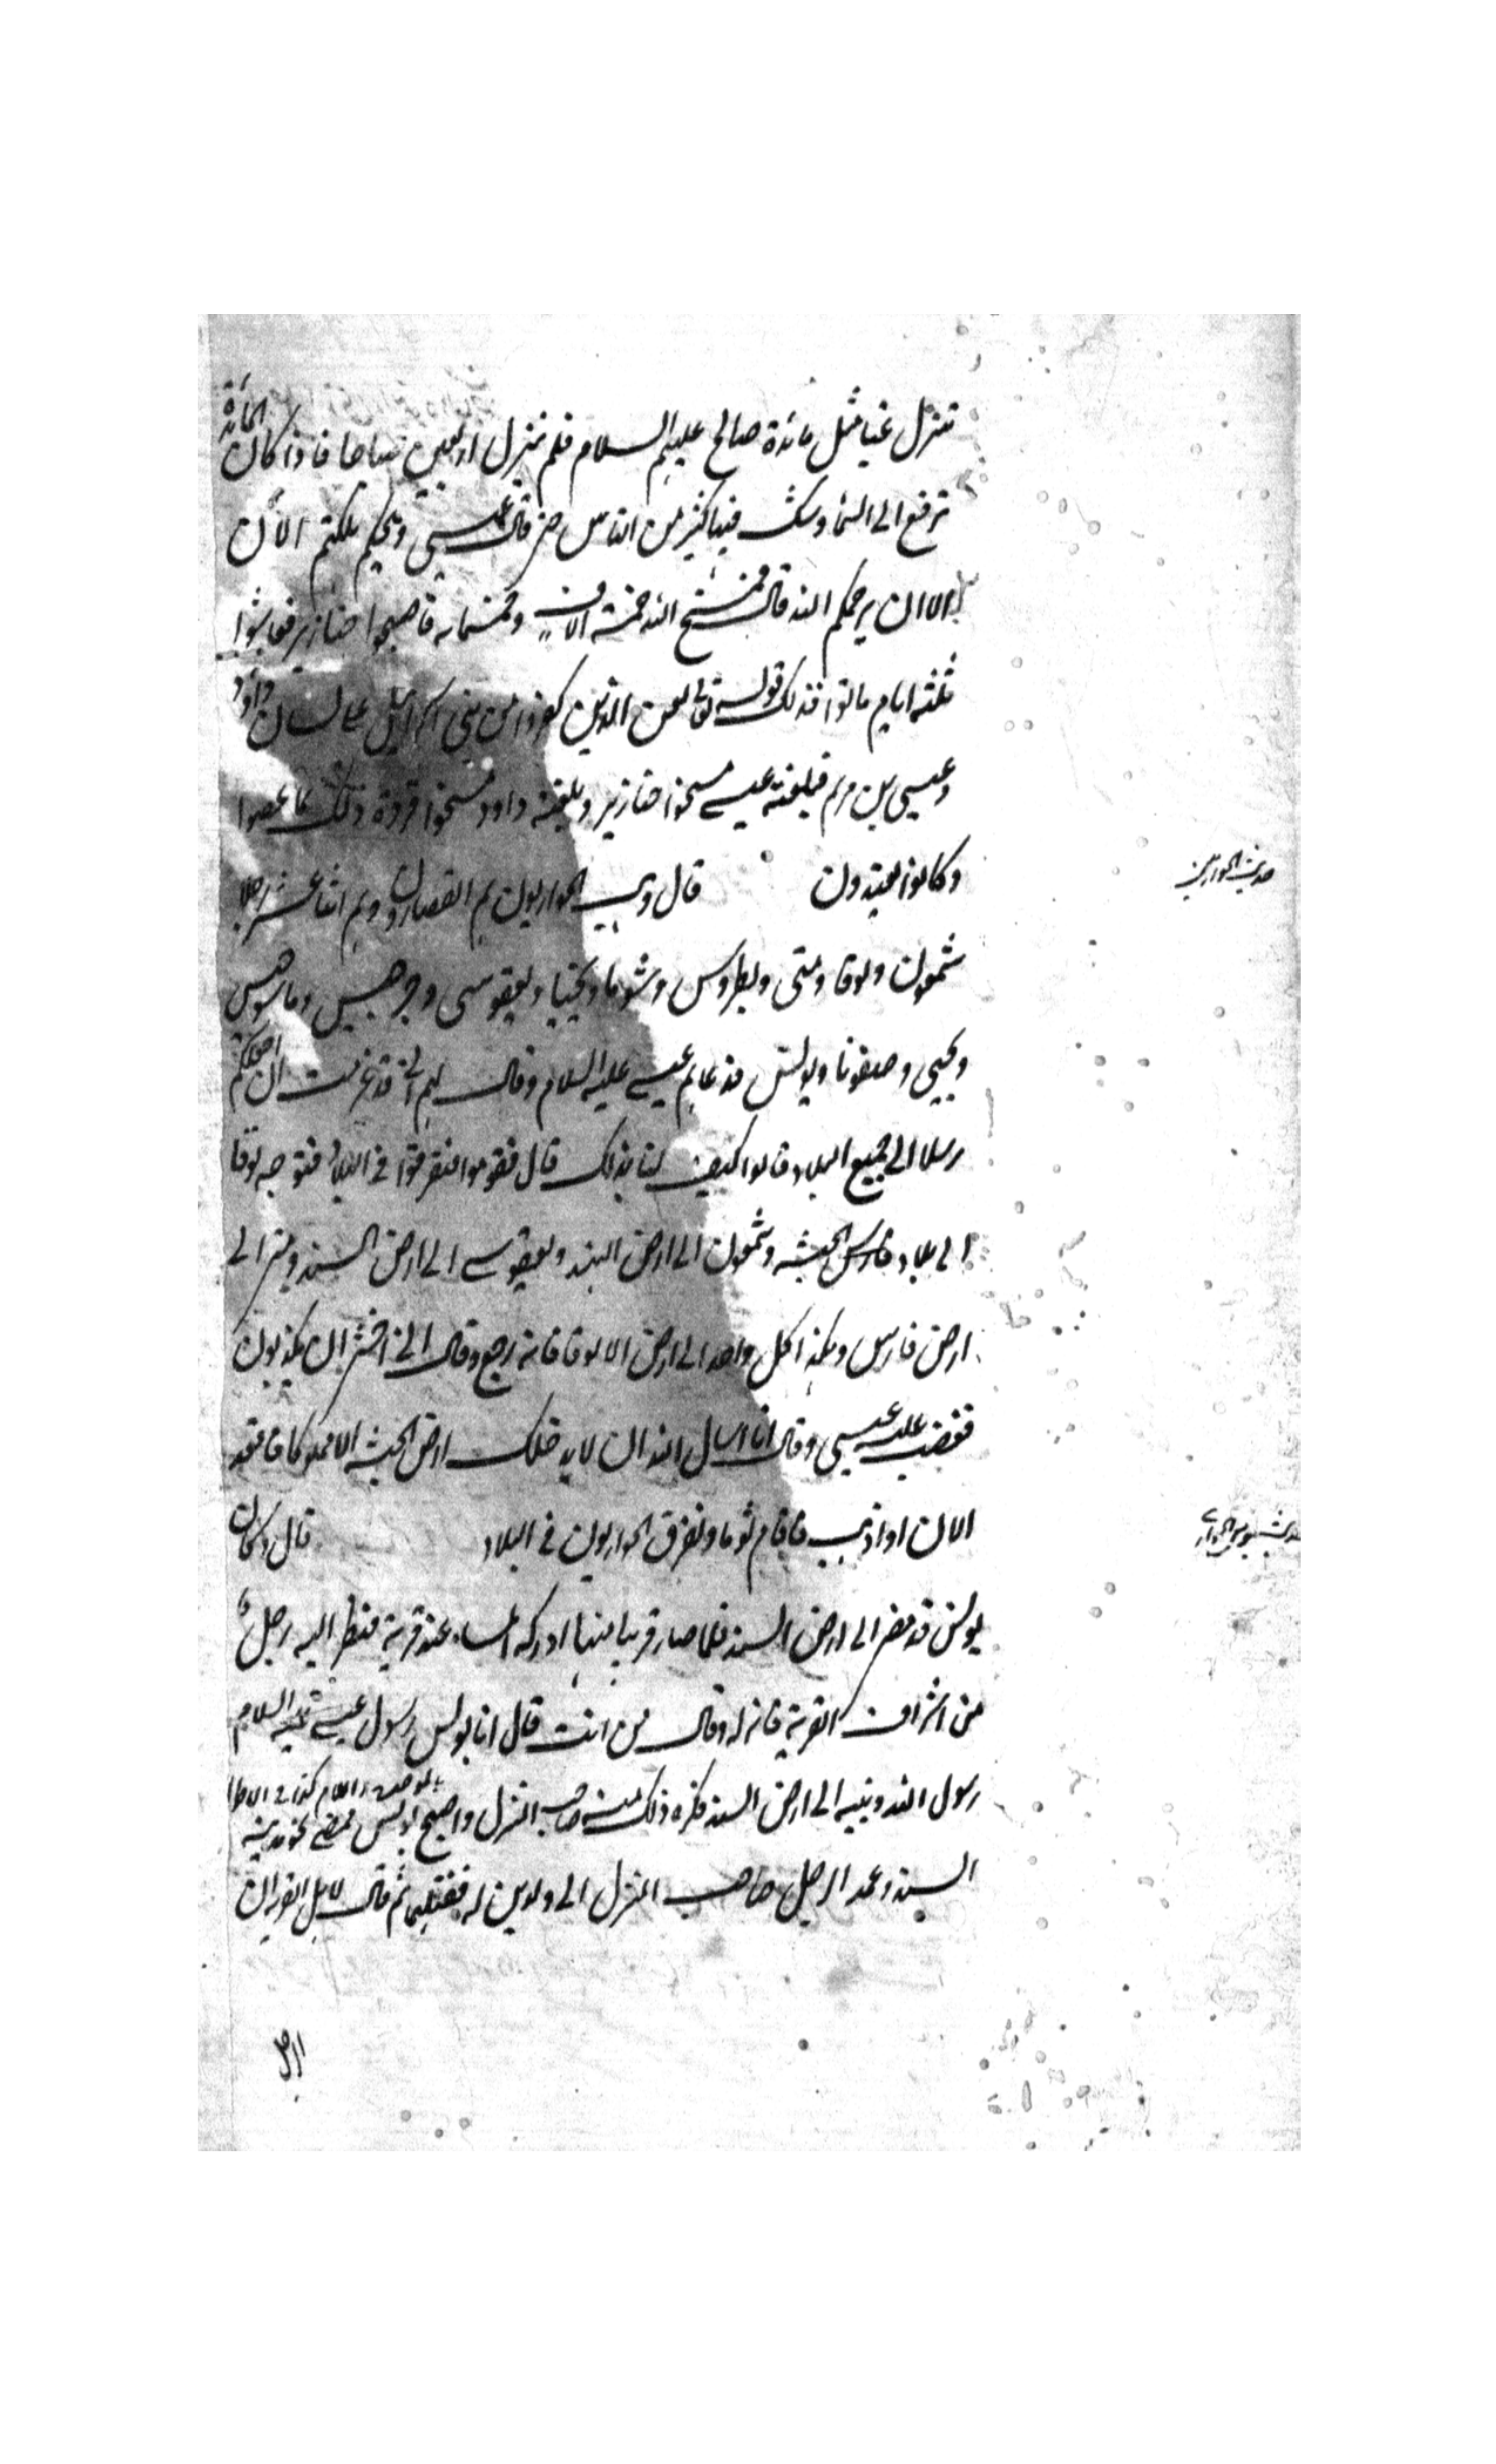 تنزل غبا مثل مائدة صالح عليهم السلام فلم تنزل اربعين صباحا فاذا كان المائدة
ترفع الى السماء وشك فيها كثير من الناس حتى قال عيسى ويحكم هلكتم الان
الا ان يرحمكم الله قال فمسخ الله خمسة الاف وخمسمايه فاصبحوا خنازير فعاشوا
ثلثه ايام ماتوا فذلك قوله تعالى لعن الذين كفروا من بنى اسرائيل على لسان داود
وعيسى بن مريم فبلعنه عيسى مسخوا خنازير وبلعنه داود مسخوا قردة ذلك بما عصوا
وكانوا يعتدون قال وهب الحواريون هم القصارون وهم اثنا عشر رجلا
شمعون ولوقا ومتى وبطروس وشوما ويحنيا ويعقوسى وجرجيس
ويحيى وصفونا وبولس فدعاهم عيسى عليه السلام وقال لهم انى قد عزمت ان اجعلكم
رسلا الى جميع البلاد قالوا كيف لنا بذلك قال فقوموا فتفرقوا فى البلاد فتوجه لوقا
الى بلاد فارس الحبشه وشمعون الى ارض الهند ويعقوسى الى ارض السند ومتى الى
ارض فارس وهكذا كل واحد الى ارض الا لوقا فانه رجع وقال انى اخشى ان يكذبون
فغضب عليه عيسى وقال انا اسال الله ان لا يدخلك ارض الحبشه الا مملوكا فاقعد
الان او اذهب فاقام ثوما وتفرق الحواريون فى البلاد قال وكان
بولس قد مضى الى ارض السند فلما صار قريبا منها ادركه المساء عند قرية فنظر اليه رجل
من اشراف القرية فانزله وقال من انت قال انا بولس رسول عيسى عليه السلام
رسول الله ونبيه الى ارض السند فكره ذلك منه صاحب المنزل واصبح بولس فمضى نحو مدينة
السند وعمد الرجل صاحب المنزل الى ولدين له فقتلهما ثم قال لاهل القريه ان
حديث الحواريين